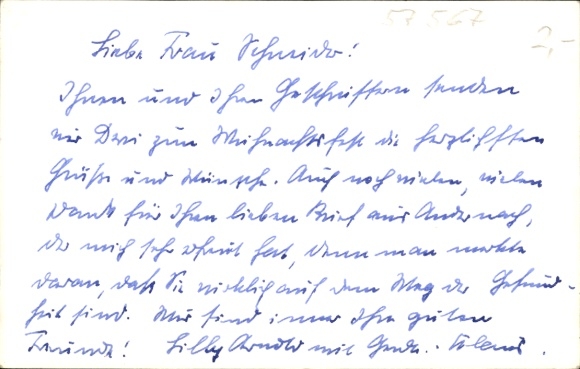 57 567
2,-
Liebe Frau Schneider!
Ihnen und Ihren Geschwistern senden
wir Drei zum Weihnachtsfest die herzlichsten
Grüße und Wünsche. Auch noch vielen, vielen
Dank für Ihren lieben Brief aus Andernach,
der mich sehr erfreut hat, denn man merkte
daran, daß Sie wirklich auf dem Weg der Gesund-
heit sind. Wir sind immer Ihre guten
Freunde! Lilly Arnold mit